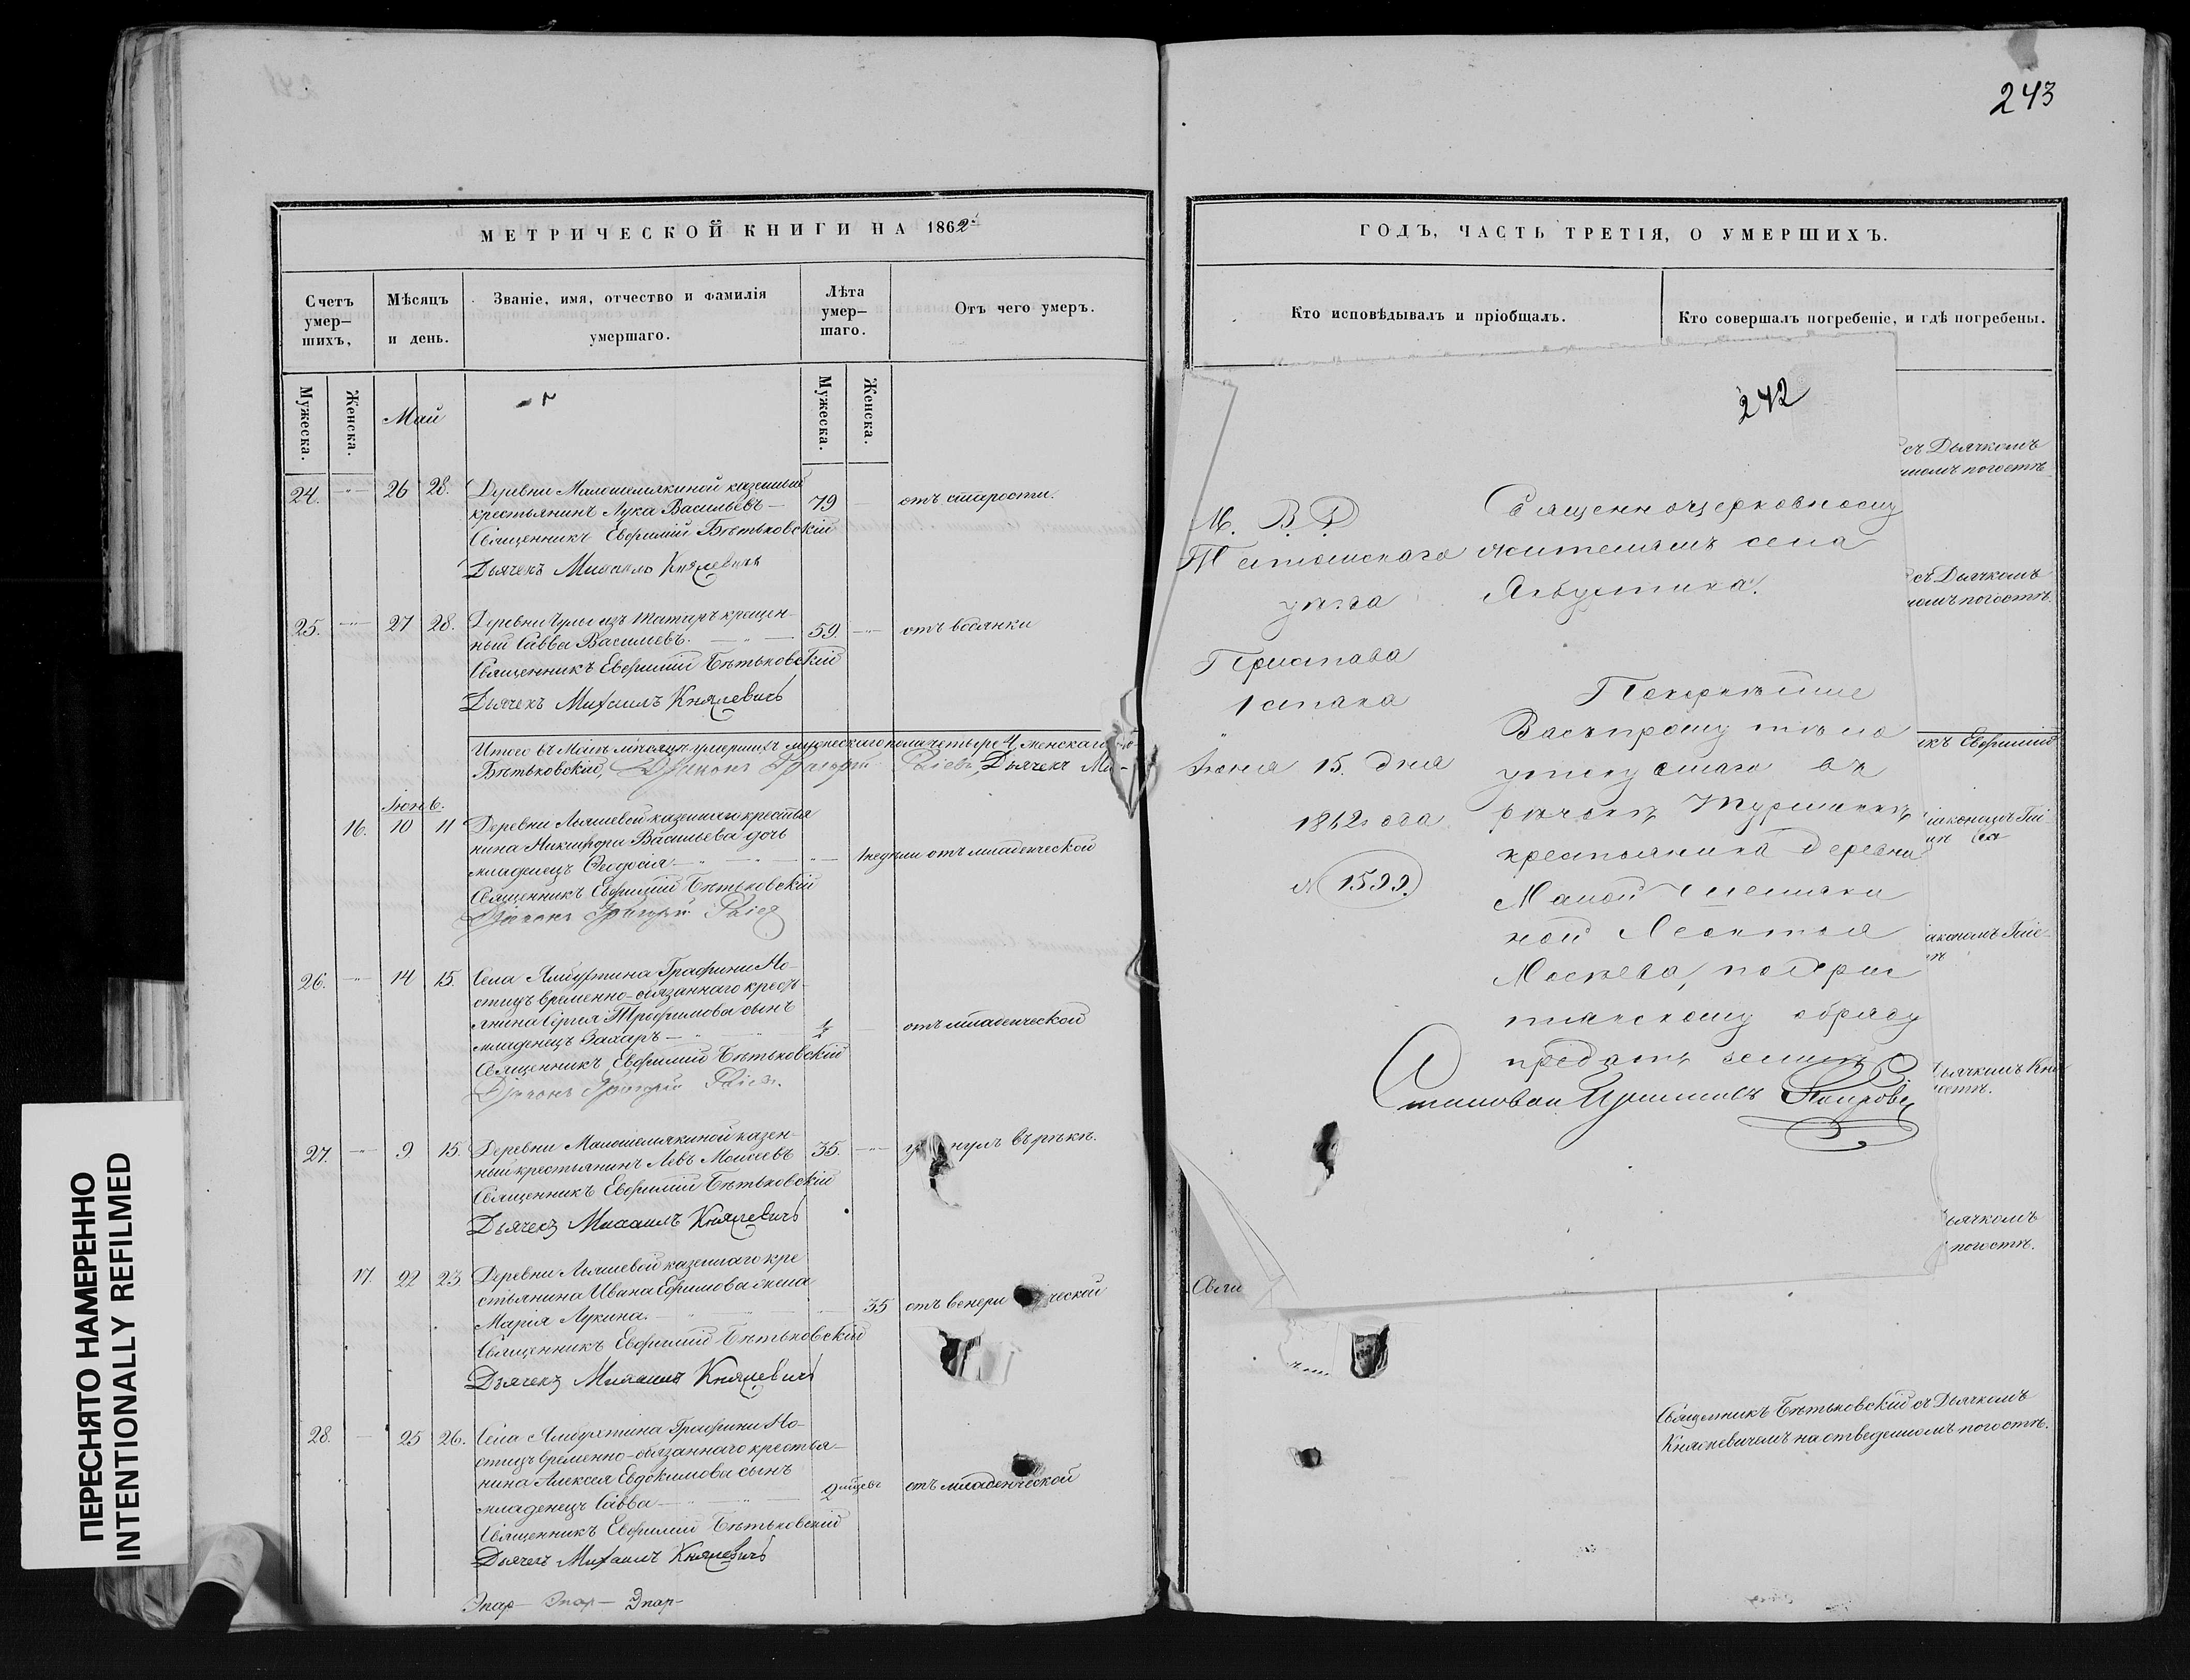 243
МЕТРИЧЕСКОЙ КНИГИ НА 1862
ГОДЪ, ЧАСТЬ ТРЕТІЯ, О УМЕРШИХЪ.
Счетъ умер-
шихъ,
Мѣсяцъ
и день.
Званіе, имя, отчество и фамилія
умершаго.
Лѣта
умер-
шаго.
Отъ чего умеръ.
Кто исповѣдывалъ и пріобщалъ.
Кто совершалъ погребеніе, и гдѣ погребены.
Мужеска.
Женска.
Мужеска.
Женска.
Май
24. 26 28. Деревни Малошемякиной казенный
крестьянинъ Лука Васильевъ 79 отъ старости.
Священникъ Евфимій Бѣтьковскій
Дьячекъ Михаилъ Княжевичъ
25. 27 28. Деревни изъ Татаръ крещен-
ный Савва Васильевъ. 59. отъ водянки
Священникъ Евфимій Бѣтьковскій
Дьячекъ Михаилъ Княжевичъ
Итого въ Маіѣ мѣсяцѣ умершихъ мужескаго пола четыре 4, женскаго
Бѣтьковскій, Діаконъ Григорій Дьячекъ Ми-
Іюнь.
16. 10 11 Деревни казеннаго крестья
нина Никифора Васильева дочь
младенецъ Ѳеодосія недѣли отъ младенческой
Священникъ Евфимій Бѣтьковскій
Діаконъ Григорій
26. 14 15. Села Ямбухтина Графини Но-
стицъ временно-обязаннаго кресть-
янина Сергія Трофимова сынъ
младенецъ Захаръ отъ младенческой
Священникъ Евфимій Бѣтьковскій
Діаконъ Григорій
27. 9 15. Деревни Малошемякиной казен-
ный крестьянинъ Левъ Моисеевъ 35. нулъ въ рѣкѣ.
Священникъ Евфимій Бѣтьковскій
Дьячекъ Михаилъ Княжевичъ
17. 22 23 Деревни казеннаго кре
стьянина Ивана Ефимова жена
Марія Лукина. 35 отъ венери ческой
Священникъ Евфимій Бѣтьковскій
Дьячекъ Михаилъ Княжевичъ
28. 25 26. Села Ямбухтина Графини Но-
стицъ временно-обязаннаго крестья-
нина Алексея Евдокимова сынъ
младенецъ Савва 2 отъ младенческой
Священникъ Евфимій Бѣтьковскій
Дьячекъ Михаилъ Княжевичъ
242
М. В. Д.
Тетюшскаго
уѣзда
Пристава
1 стана
Іюня 15. дня
1862 года
№ 1599.
Священноцерковно
жителямъ села
Ямбухтина.
Покорнѣйше
Васъ прошу тѣло
утонувшаго въ
рѣчкѣ
крестьянина деревни
Малой Шемяки
ной Леонтья
Мосѣева, по Хрис
тіанскому обряду
предать землѣ
Становой Приставъ
съ Дьячкомъ
погостѣ
съ Дьячкомъ
погостѣ.
Евфимій
Дьячкомъ
погостѣ.
Священникъ Бѣтьковскій съ Дьячкомъ
Княжевичемъ на отведенномъ погостѣ.
ПЕРЕСНЯТО НАМЕРЕННО
INTENTIONALLY REFILMED